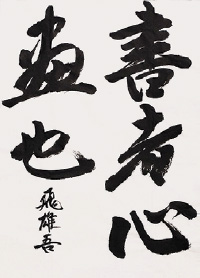 書者心
畫也
飛雄吾